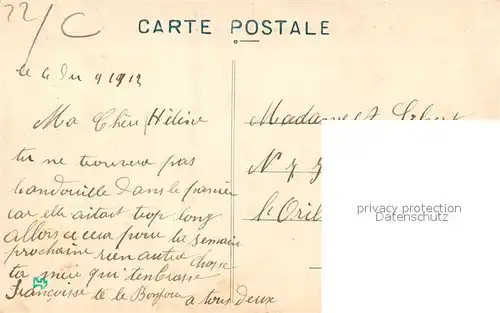 22/C
CARTE POSTALE
le 4 du 9 1912
Ma Chèr Hélène
tu ne trouvera pas
landouille dans le panier
car elle aitait trop long
allors ce cera pour la semaine
prochaine rien autre chosse
ta qui tenbrasse
Françoisse te le Bonjour a tous deux
Madame
N
privacy protection
Datenschutz